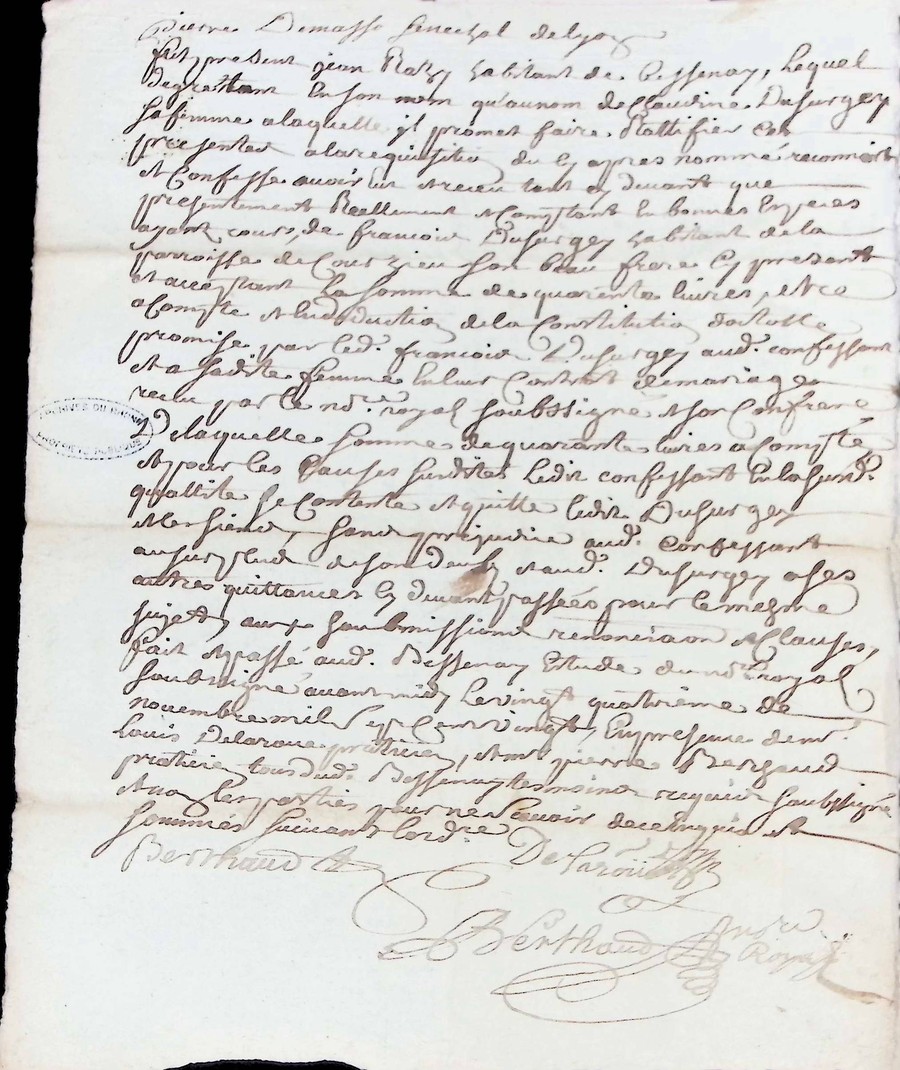 pierre Demasso senechal de lyon
fut present jean Razy habitant de Bessenay, Lequel
de gre tant En son nom qu'au nom de Claudine Dusurgey
sa femme a laquelle il promet faire Rattifier ces
presentes a la requisition du cy apres nommé reconnoit
et Confesse avoir Eu et receu tant cy devant que
presentement Reellement et Comptant En bonnes Especes
ayant cours, de francois Dusurgey habitant de la
parroisse de Courzieu son beau frere cy present
et acceptant La somme de quarente livres, et ce
a Compte et En deduction de la Constitution dotalle
promise par led. francois Dusurgey aud. confessant
et a sadite femme En leur Contrat de mariage
receu par le nore. royal soubssigné et son Confrere
De laquelle somme de quarante livres a Compte
et pour les Causes susdites Ledit confessant En la susd.
quallité se Contente et quitte ledit Dusurgey
et les siens, sans prejudice aud. confessant
au surplus de son deub et aud. Dusurgey a ses
autres quittances Cy devant passées pour le mesme
sujet, aux soubmissions renonciaon et Clauses,
fait et passé aud. Bessenay Estude du nore. royal
soubsigné avant midy Le vingt quatrieme de
novembre mil sept Cent vingt, En presence de mr.
Louis Delaroue praticien, et mr. pierre Berthaud
praticien tous dud. Bessenay tesmoins requis soubssignés
et non Les parties pour ne scavoir de ce Enquis et
sommés suivant Lordre
Berthaud Delaroüe
Berthaud Nore
Royal
ARCHIVES DU RHONE